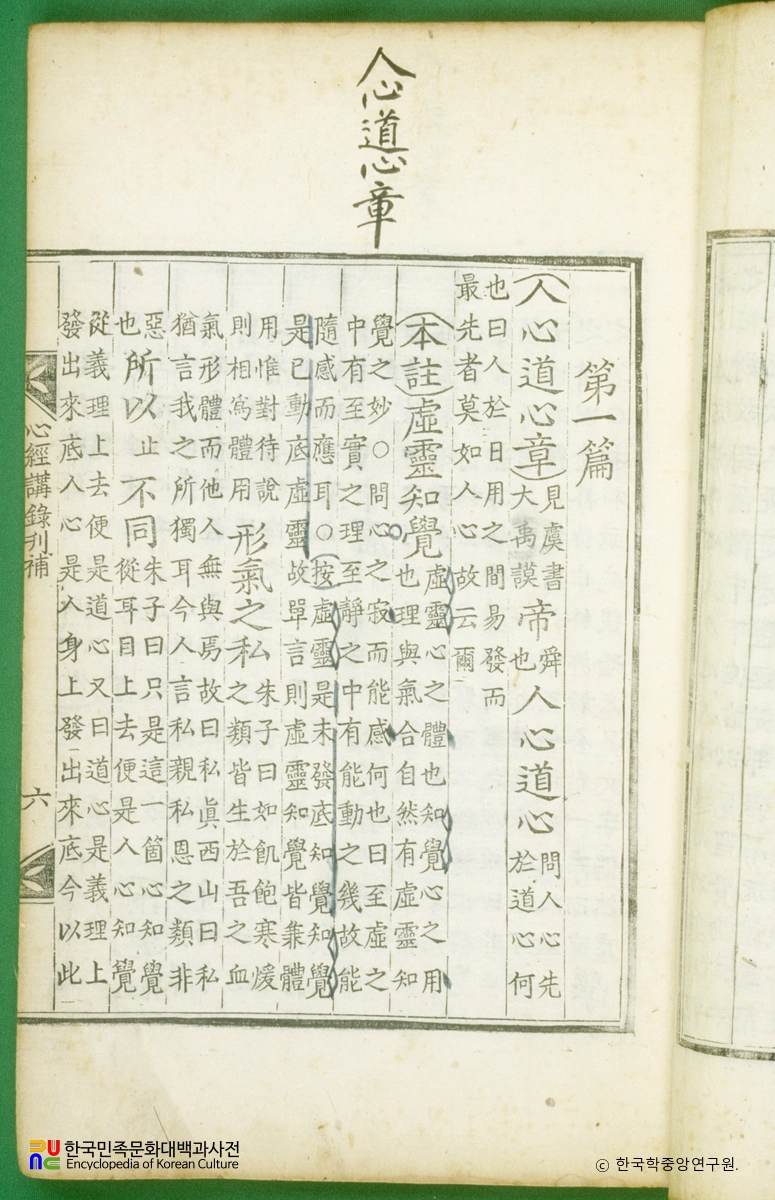 人心道心章
第一篇
(人心道心章)見虞書大禹謨帝舜也人心道心問人心先於道心何
也曰人於日用之間易發而最先者莫如人心故云爾
(本註)虛靈知覺虛靈心之體也知覺心之用也理與氣合自然有虛靈知
覺之妙○問心之寂而能感何也曰至虛之中有至實之理至靜之中有能動之幾故能
隨感而應耳○(按)虛靈是未發底知覺知覺是已動底虛靈故單言則虛靈知覺皆兼體
用惟對待說則相爲體用形氣之私朱子曰如飢飽寒煖之類皆生於吾之血
氣形體而他人無與焉故曰私眞西山曰私猶言我之所獨耳今人言私親私恩之類非
惡也所以止不同朱子曰只是這一箇心知覺從耳目上去便是人心知覺
從義理上去便是道心又曰道心是義理上發出來底人心是人身上發出來底今以此
心經講錄刊補 六
한국민족문화대백과사전
Encyclopedia of Korean Culture
ⓒ 한국학중앙연구원.